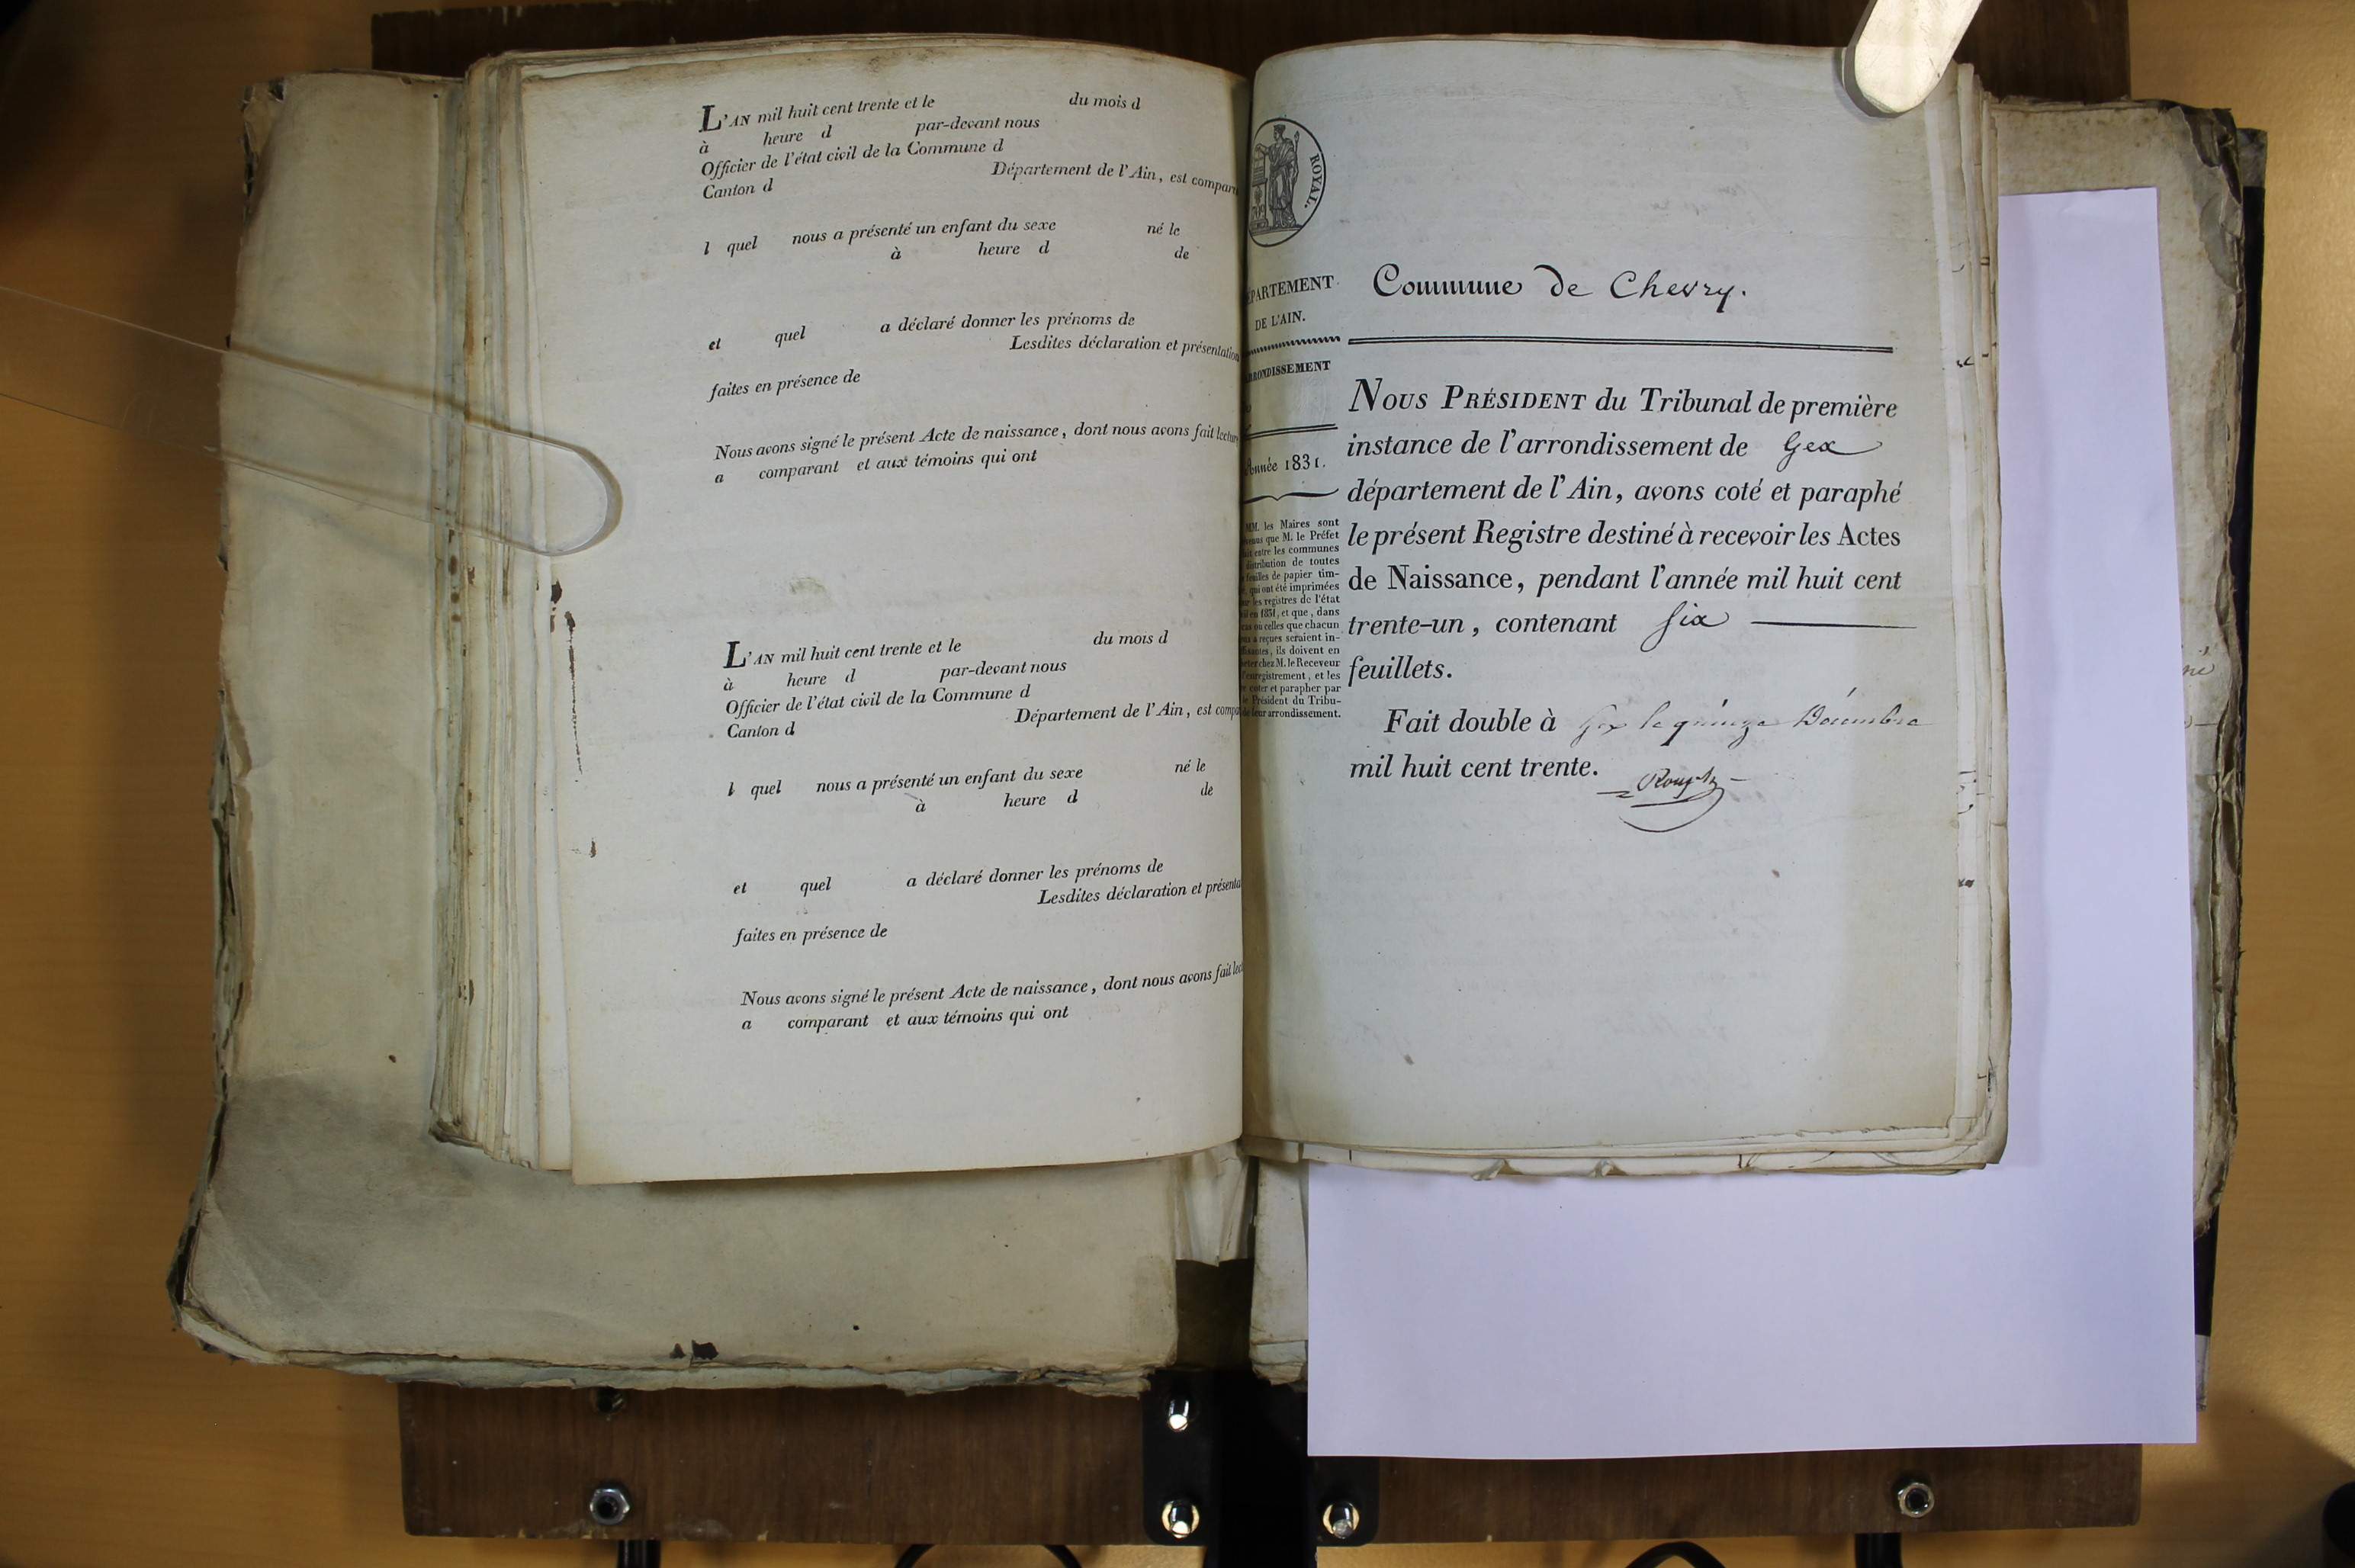 L'AN mil huit cent trente et le du mois d
à heure d par-devant nous
Officier de l'état civil de la Commune d
Canton d Département de l'Ain, est compar
l quel nous a présenté un enfant du sexe né le
à heure d de
et quel a déclaré donner les prénoms de
Lesdites déclaration et présentation
faites en présence de
Nous avons signé le présent Acte de naissance, dont nous avons fait lecture
a comparant et aux témoins qui ont
L'AN mil huit cent trente et le du mois d
à heure d par-devant nous
Officier de l'état civil de la Commune d
Canton d Département de l'Ain, est compa
l quel nous a présenté un enfant du sexe né le
à heure d de
et quel a déclaré donner les prénoms de
Lesdites déclaration et présenta
faites en présence de
Nous avons signé le présent Acte de naissance, dont nous avons fait lec
a comparant et aux témoins qui ont
ROYAL.
ÉPARTEMENT
DE L'AIN.
RRONDISSEMENT
Année 1831.
MM. les Maires sont
que M. le Préfet
entre les communes
distribution de toutes
feuilles de papier tim-
qui ont été imprimées
les registres de l'état
en 1831, et que, dans
ou celles que chacun
a reçues seraient in-
ils doivent en
chez M. le Receveur
enregistrement, et les
coter et parapher par
Président du Tribu-
leur arrondissement.
Commune de Chevry.
NOUS PRÉSIDENT du Tribunal de première
instance de l'arrondissement de Gex
département de l'Ain, avons coté et paraphé
le présent Registre destiné à recevoir les Actes
de Naissance, pendant l'année mil huit cent
trente-un, contenant six
feuillets.
Fait double à Gex le quinze Décembre
mil huit cent trente.